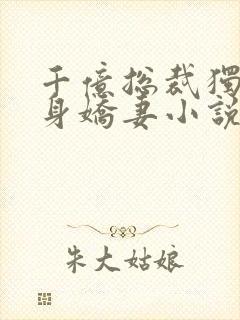 千億捴裁獨
身嬌妻小說
朱大姑娘